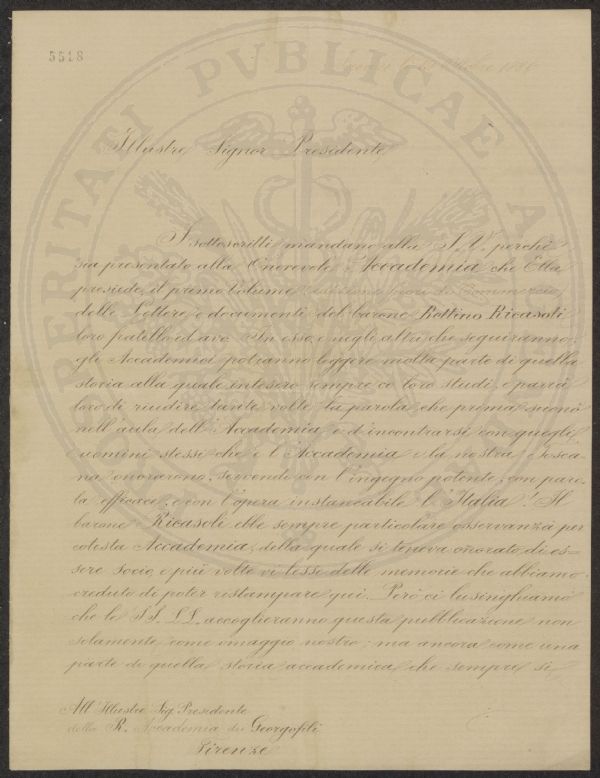 5518
Illustre Signor Presidente
I sottoscritti mandano alla S. V. perchè
sia presentato alla Onorevole Accademia che Ella
presiede, il primo Volume
delle Lettere e documenti del barone Bettino Ricasoli
loro fratello ed avo. In esso e negli altri che seguiranno
gli Accademici potranno leggere molta parte di quella
storia alla quale intesero sempre i loro studi, e parrà
loro di riudire tante volte la parola, che prima suonò
nell'aula dell'Accademia, e d'incontrarsi con quegli
uomini stessi che e l'Accademia e la nostra Tosca=
na onorarono, servendo con l'ingegno potente, con paro=
la efficace, e con l'opera instancabile l'Italia. Il
barone Ricasoli ebbe sempre particolare osservanza per
cotesta Accademia, della quale si teneva onorato di es=
sere socio, e più volte vi lesse delle memorie che abbiamo
creduto di poter ristampare qui. Però ci lusinghiamo
che le SS. LL. accoglieranno questa pubblicazione non
solamente come omaggio nostro, ma ancora come una
parte di quella storia accademica, che sempre si
All'Illustre Sig. Presidente
della R. Accademia dei Georgofili
Firenze
PERITATI PVBLICAE